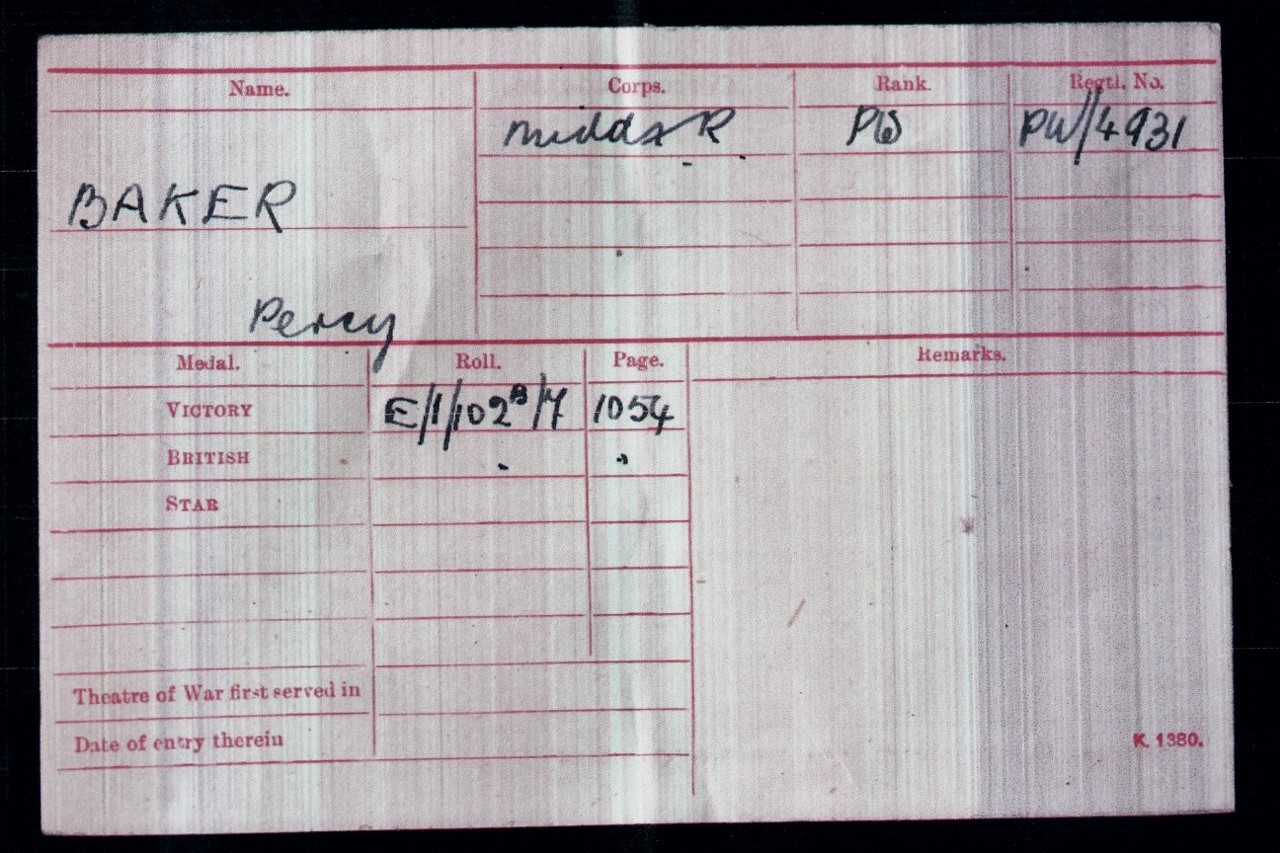 Name. Corps. Rank. Regtl. No.
Midd'x R PW PW/4931
BAKER
Percy
Medal. Roll. Page. Remarks.
VICTORY E/1/102B/7 1054
BRITISH " "
STAR
Theatre of War first served in
Date of entry therein
K. 1380.